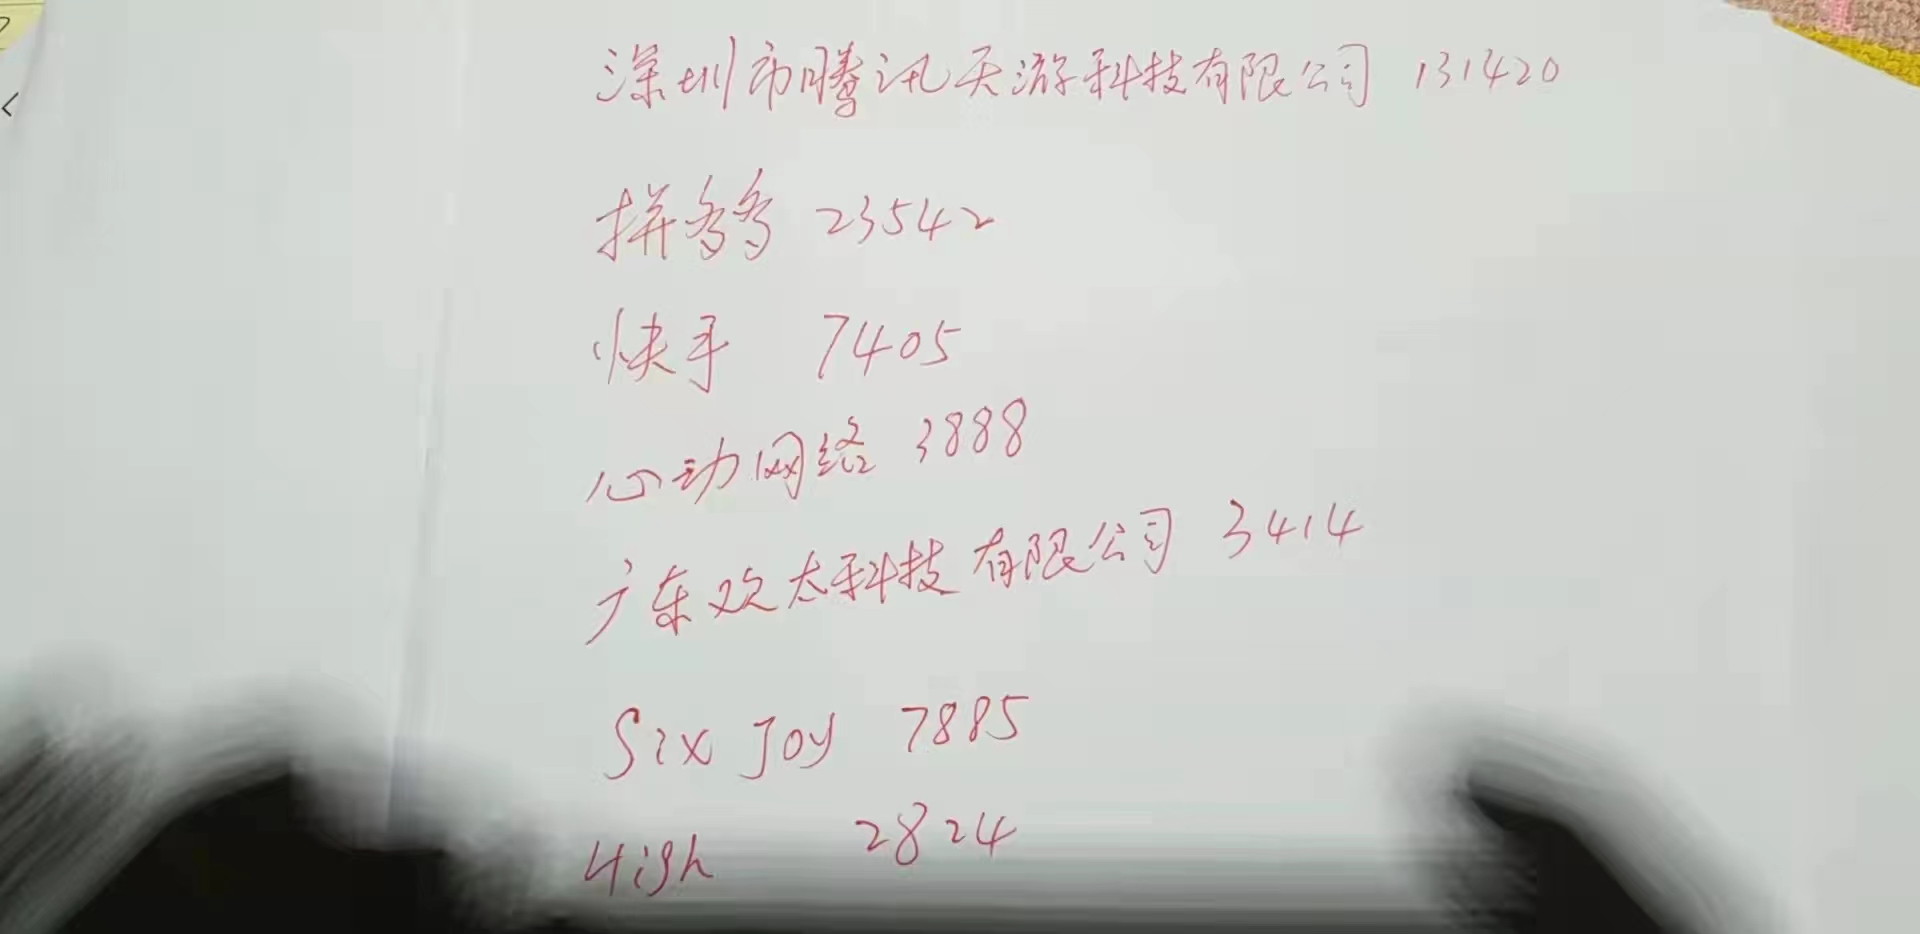 深圳市腾讯天游科技有限公司 131420
拼多多 23542
快手 7405
心动网络 3888
广东欢太科技有限公司 3414
Six Joy 7885
High 2824